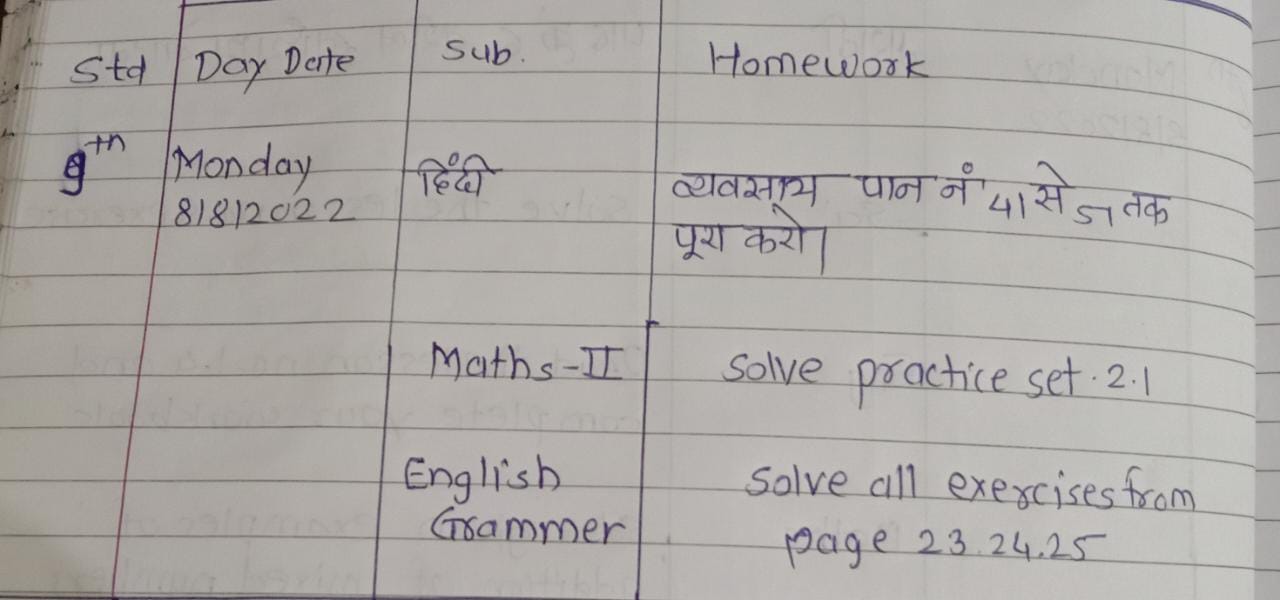 Std Day Date Sub. Homework
9th Monday हिंदी व्यवसाय पान नं 41 से 51 तक
8/8/2022 पूरा करो|
Maths-II Solve practice set. 2.1
English Solve all exercises from
Grammer page 23.24.25